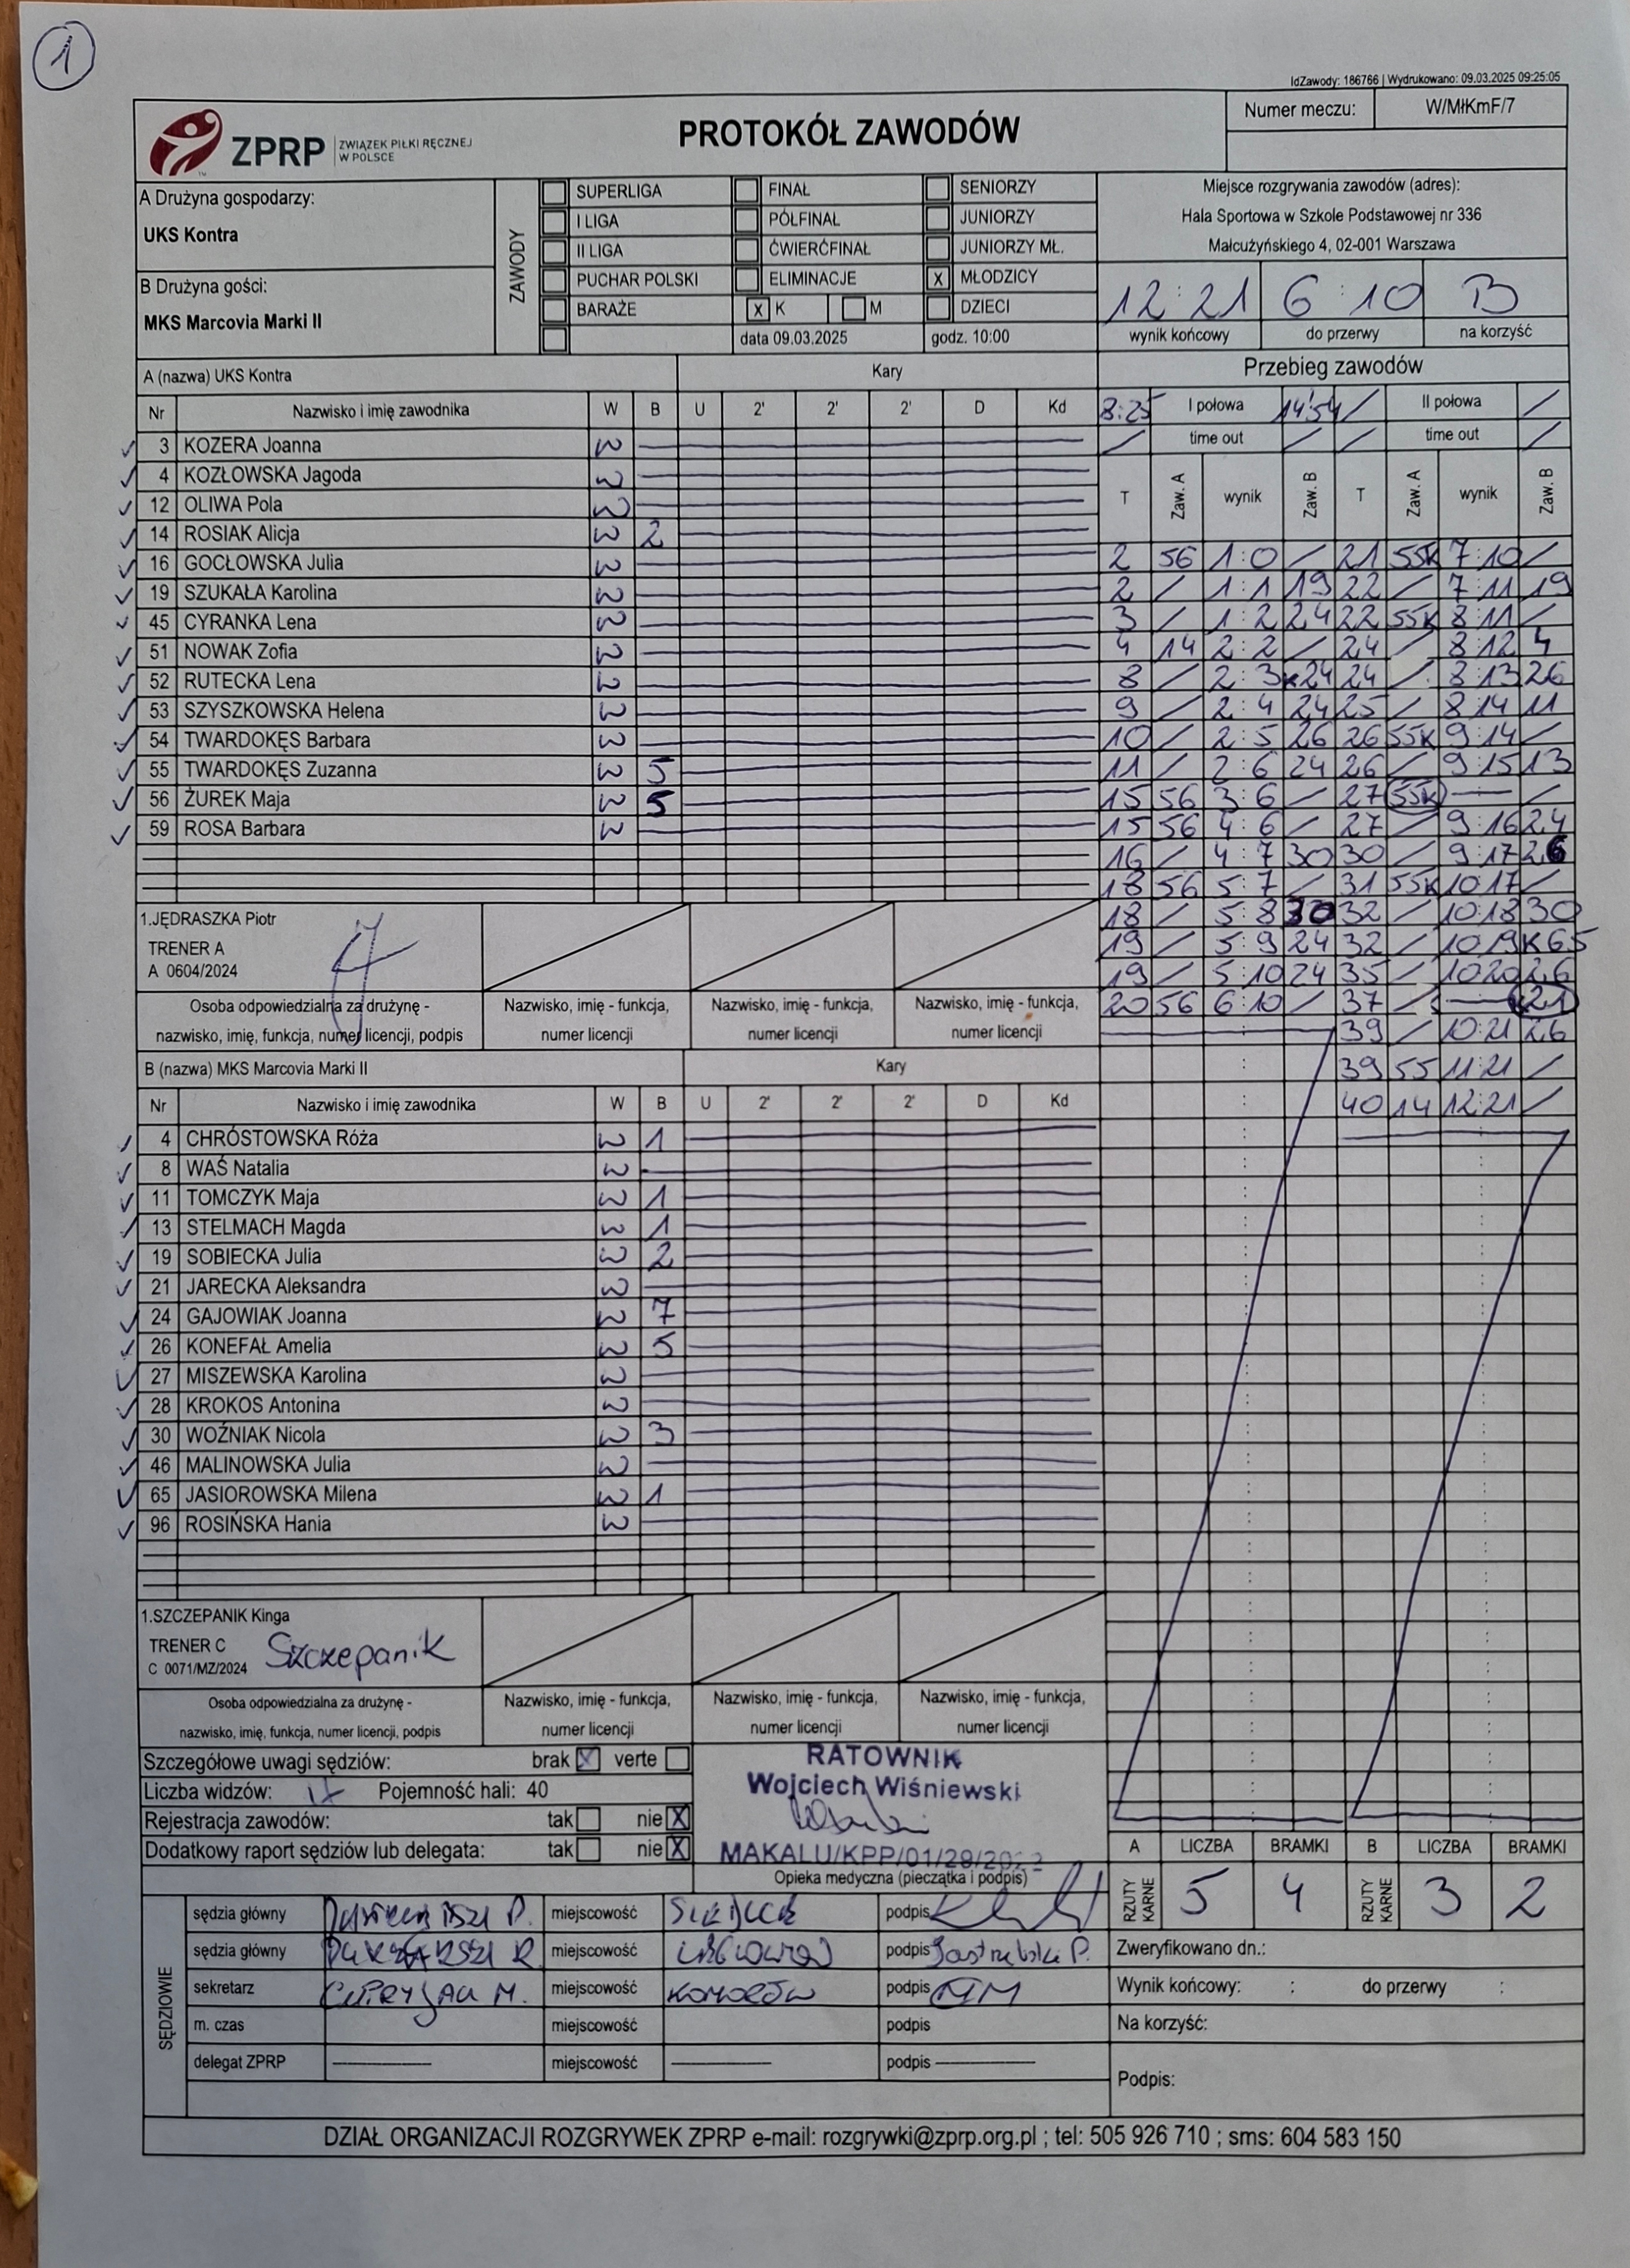 1
IdZawody: 186766 | Wydrukowano: 09.03.2025 09:25:05
ZPRP ZWIĄZEK PIŁKI RĘCZNEJ W POLSCE
PROTOKÓŁ ZAWODÓW
Numer meczu: W/MłKmF/7
A Drużyna gospodarzy:
UKS Kontra
B Drużyna gości:
MKS Marcovia Marki II
ZAWODY
SUPERLIGA FINAŁ SENIORZY
I LIGA PÓŁFINAŁ JUNIORZY
II LIGA ĆWIERĆFINAŁ JUNIORZY MŁ.
PUCHAR POLSKI ELIMINACJE X MŁODZICY
BARAŻE X K M DZIECI
data 09.03.2025 godz. 10:00
Miejsce rozgrywania zawodów (adres):
Hala Sportowa w Szkole Podstawowej nr 336
Małcużyńskiego 4, 02-001 Warszawa
12:21 6:10 B
wynik końcowy do przerwy na korzyść
A (nazwa) UKS Kontra Kary
Nr Nazwisko i imię zawodnika W B U 2' 2' 2' D Kd
3 KOZERA Joanna W
4 KOZŁOWSKA Jagoda W
12 OLIWA Pola W
14 ROSIAK Alicja W 2
16 GOCŁOWSKA Julia W
19 SZUKAŁA Karolina W
45 CYRANKA Lena W
51 NOWAK Zofia W
52 RUTECKA Lena W
53 SZYSZKOWSKA Helena W
54 TWARDOKĘS Barbara W
55 TWARDOKĘS Zuzanna W 5
56 ŻUREK Maja W 5
59 ROSA Barbara W
1.JĘDRASZKA Piotr
TRENER A
A 0604/2024
Osoba odpowiedzialna za drużynę -
nazwisko, imię, funkcja, numer licencji, podpis
Nazwisko, imię - funkcja,
numer licencji
Nazwisko, imię - funkcja,
numer licencji
Nazwisko, imię - funkcja,
numer licencji
B (nazwa) MKS Marcovia Marki II Kary
Nr Nazwisko i imię zawodnika W B U 2' 2' 2' D Kd
4 CHRÓSTOWSKA Róża W 1
8 WAŚ Natalia W
11 TOMCZYK Maja W 1
13 STELMACH Magda W 1
19 SOBIECKA Julia W 2
21 JARECKA Aleksandra W
24 GAJOWIAK Joanna W 7
26 KONEFAŁ Amelia W 5
27 MISZEWSKA Karolina W
28 KROKOS Antonina W
30 WOŹNIAK Nicola W 3
46 MALINOWSKA Julia W
65 JASIOROWSKA Milena W 1
96 ROSIŃSKA Hania W
1.SZCZEPANIK Kinga
TRENER C
C 0071/MZ/2024
Szczepanik
Osoba odpowiedzialna za drużynę -
nazwisko, imię, funkcja, numer licencji, podpis
Nazwisko, imię - funkcja,
numer licencji
Nazwisko, imię - funkcja,
numer licencji
Nazwisko, imię - funkcja,
numer licencji
Przebieg zawodów
8:25 I połowa 14:54 / II połowa /
/ time out / / time out /
T Zaw. A wynik Zaw. B T Zaw. A wynik Zaw. B
2 56 1:0 / 21 55K 7:10 /
2 / 1:1 19 22 / 7:11 19
3 / 1:2 24 22 55K 8:11 /
4 14 2:2 / 24 / 8:12 4
8 / 2:3 K24 24 / 8:13 26
9 / 2:4 24 25 / 8:14 11
10 / 2:5 26 26 55K 9:14 /
11 / 2:6 24 26 / 9:15 13
15 56 3:6 / 27 55K — /
15 56 4:6 / 27 / 9:16 24
16 / 4:7 30 30 / 9:17 26
18 56 5:7 / 31 55K 10:17 /
18 / 5:8 30 32 / 10:18 30
19 / 5:9 24 32 / 10:19 K65
19 / 5:10 24 35 / 10:20 26
20 56 6:10 / 37 / — 21
39 / 10:21 26
39 55 11:21 /
40 14 12:21 /
Szczegółowe uwagi sędziów: brak X verte
Liczba widzów: Pojemność hali: 40
Rejestracja zawodów: tak nie X
Dodatkowy raport sędziów lub delegata: tak nie X
RATOWNIK
Wojciech Wiśniewski
MAKALU/KPP/01/29/2023
Opieka medyczna (pieczątka i podpis)
A LICZBA BRAMKI B LICZBA BRAMKI
RZUTY KARNE 5 4 RZUTY KARNE 3 2
SĘDZIOWIE
sędzia główny miejscowość podpis
sędzia główny miejscowość podpis Jastrzębski P.
sekretarz miejscowość KOMORÓW podpis
m. czas miejscowość podpis
delegat ZPRP miejscowość podpis
Zweryfikowano dn.:
Wynik końcowy: : do przerwy :
Na korzyść:
Podpis:
DZIAŁ ORGANIZACJI ROZGRYWEK ZPRP e-mail: rozgrywki@zprp.org.pl ; tel: 505 926 710 ; sms: 604 583 150